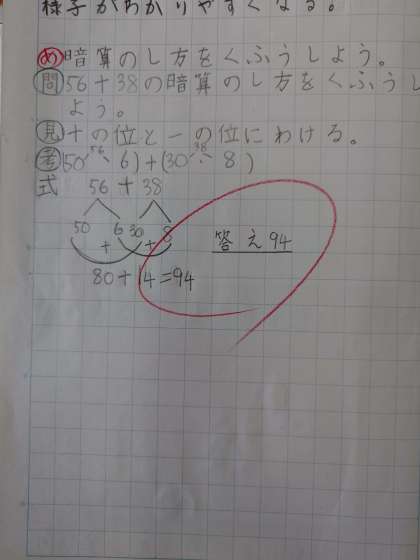 様子がわかりやすくなる。
め 暗算のし方をくふうしよう。
問 56+38の暗算のし方をくふうし
よう。
見 十の位と一の位にわける。
56 38
考 (50、6)+(30、8)
式 56+38
50 6 30 8
+ +
答え94
80+14=94